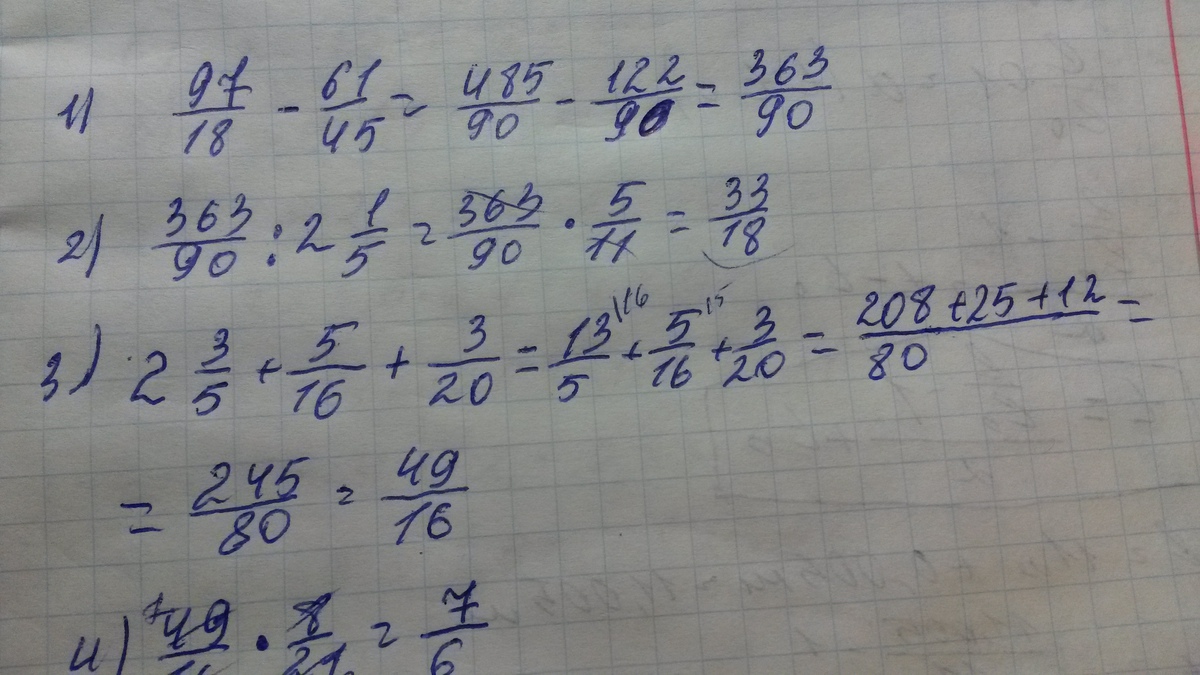 1) 97/18 - 61/45 = 485/90 - 122/90 = 363/90
2) 363/90 : 2 1/5 = 363/90 · 5/11 = 33/18
3) 2 3/5 + 5/16 + 3/20 = 13/5 \16 + 5/16 \5 + 3/20 = 208+25+12/80 =
= 245/80 = 49/16
4) 7 49/16 · 8/21 = 7/6